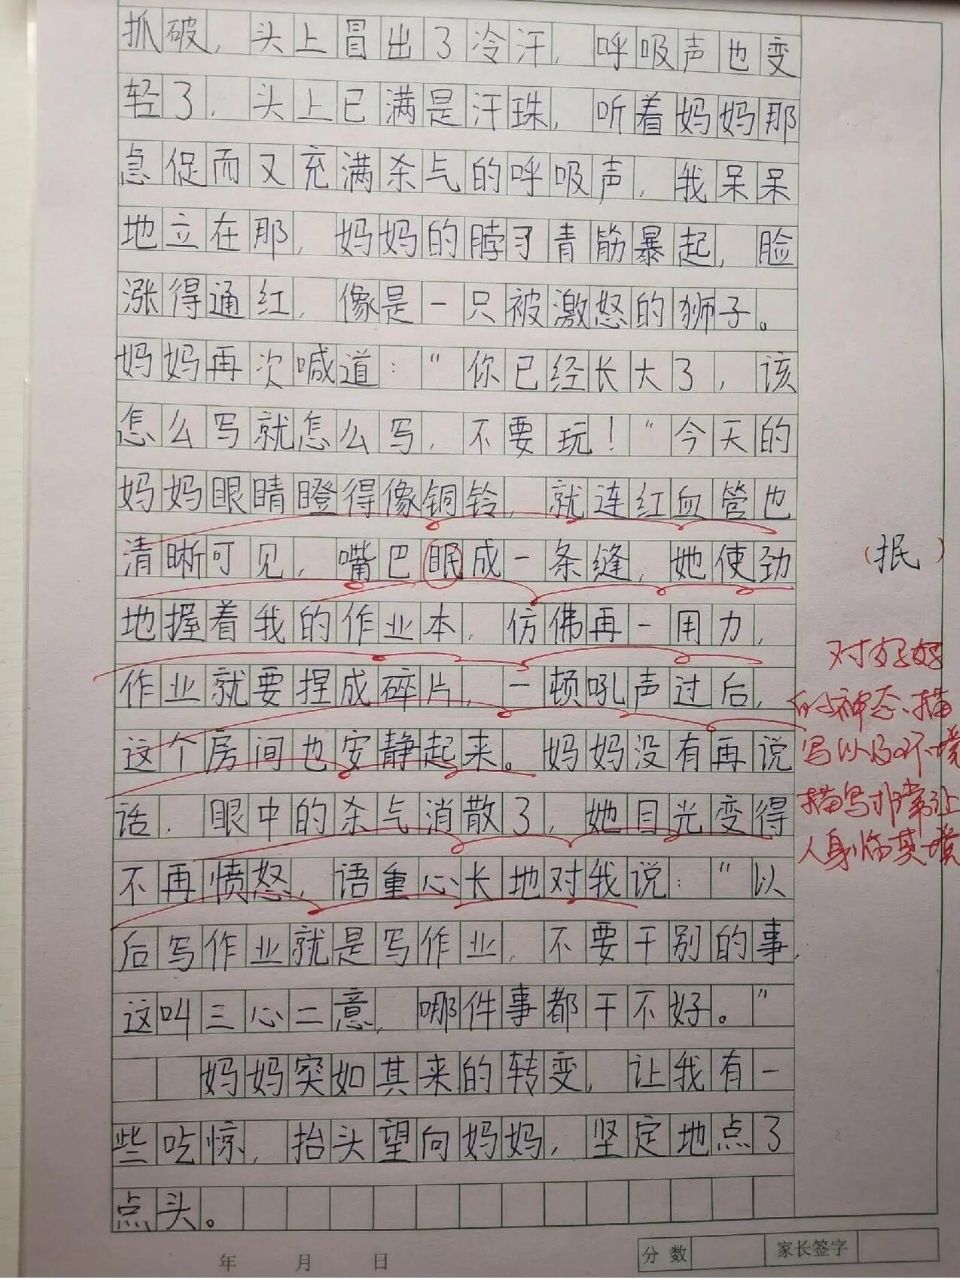 抓破，头上冒出了冷汗，呼吸声也变
轻了，头上已满是汗珠，听着妈妈那
急促而又充满杀气的呼吸声，我呆呆
地立在那，妈妈的脖子青筋暴起，脸
涨得通红，像是一只被激怒的狮子。
妈妈再次喊道："你已经长大了，该
怎么写就怎么写，不要玩！"今天的
妈妈眼睛瞪得像铜铃，就连红血管也
清晰可见，嘴巴眠成一条缝，她使劲
（抿）
地握着我的作业本，仿佛再一用力，
作业就要捏成碎片，一顿吼声过后，
这个房间也安静起来。妈妈没有再说
话，眼中的杀气消散了，她目光变得
不再愤怒，语重心长地对我说："以
后写作业就是写作业，不要干别的事，
这叫三心二意，哪件事都干不好。"
妈妈突如其来的转变，让我有一
些吃惊，抬头望向妈妈，坚定地点了
点头。
对妈妈
的神态、描
写以及环境
描写非常让
人身临其境
年 月 日
分数 家长签字